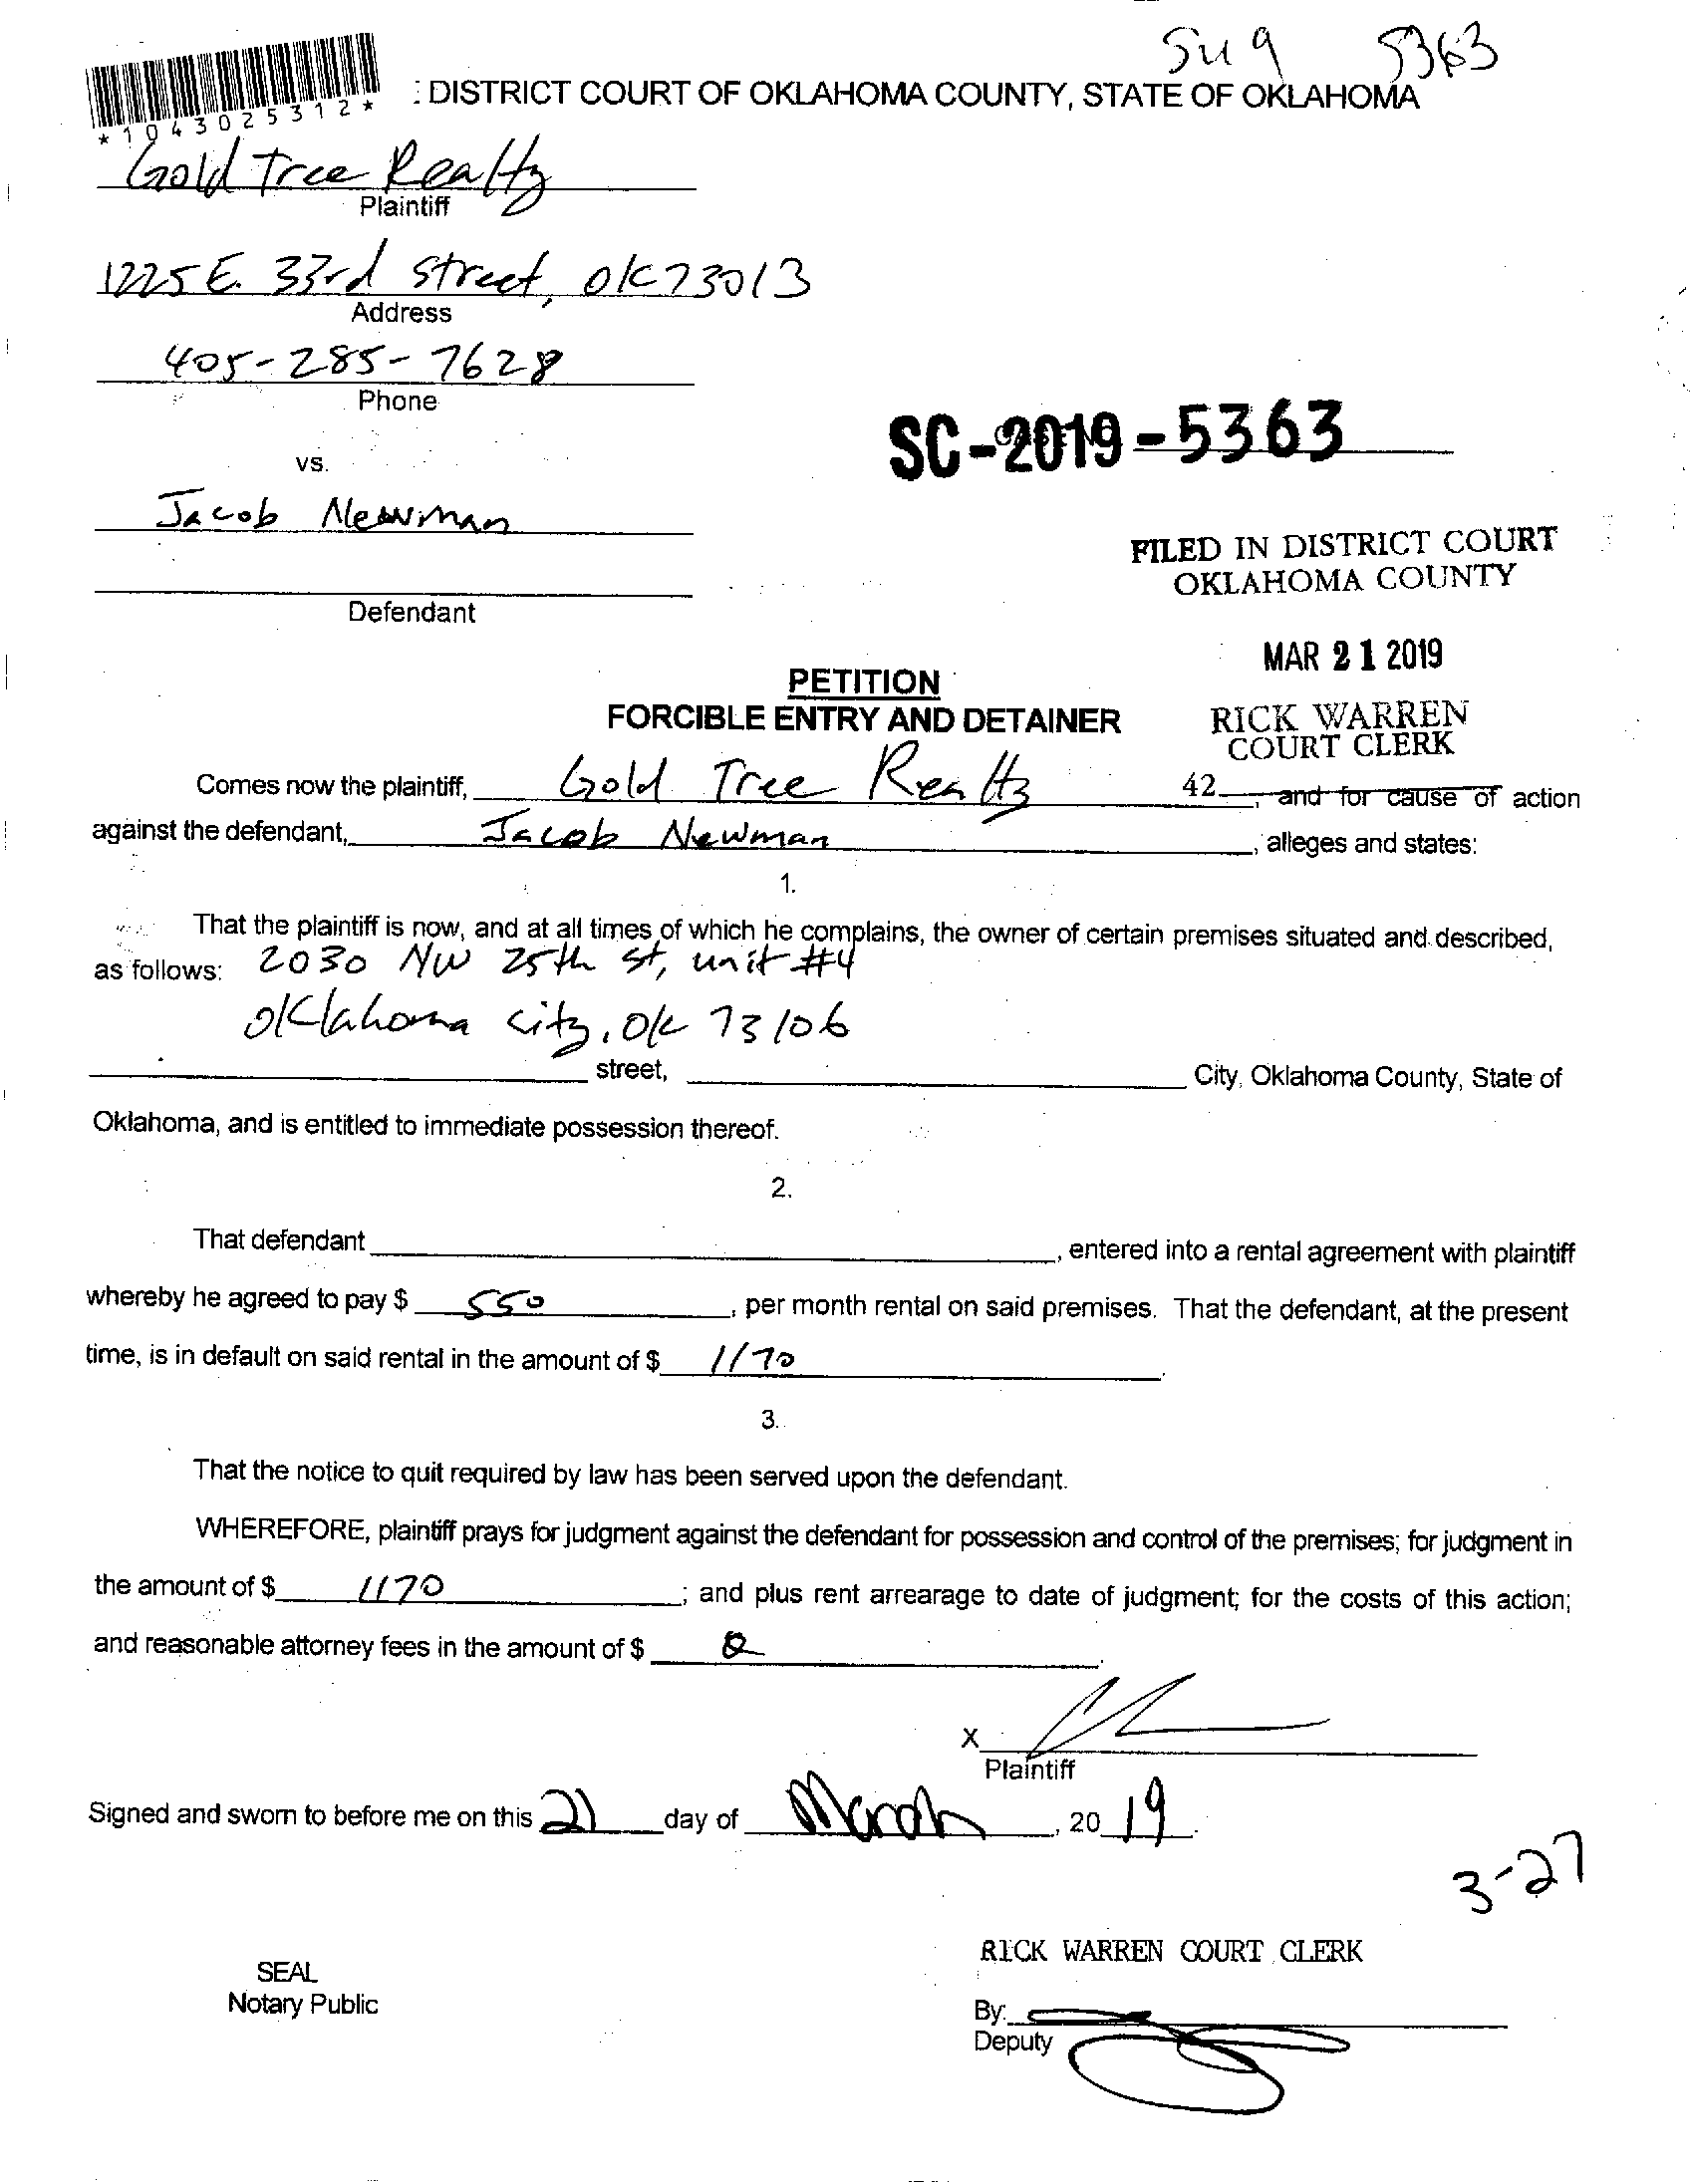 5363
: DISTRICT COURT OF OKLAHOMA COUNTY, STATE OF OKLAHOMA
*1043025312*
Gold Tree Realty
Plaintiff
1225 E. 33rd street, OK 73013
Address
405-285-7628
Phone
SC-2019-5363
vs.
Jacob Newman
FILED IN DISTRICT COURT
OKLAHOMA COUNTY
Defendant
MAR 21 2019
PETITION
FORCIBLE ENTRY AND DETAINER
RICK WARREN
COURT CLERK
Comes now the plaintiff, Gold Tree Realty 42 , and for cause of action
against the defendant, Jacob Newman , alleges and states:
1.
That the plaintiff is now, and at all times of which he complains, the owner of certain premises situated and described,
as follows: 2030 NW 25th st, unit #4
oklahoma city, OK 73106
street, City, Oklahoma County, State of
Oklahoma, and is entitled to immediate possession thereof.
2.
That defendant , entered into a rental agreement with plaintiff
whereby he agreed to pay $ 550 , per month rental on said premises. That the defendant, at the present
time, is in default on said rental in the amount of $ 1170 .
3.
That the notice to quit required by law has been served upon the defendant.
WHEREFORE, plaintiff prays for judgment against the defendant for possession and control of the premises; for judgment in
the amount of $ 1170 ; and plus rent arrearage to date of judgment; for the costs of this action;
and reasonable attorney fees in the amount of $ .
X
Plaintiff
Signed and sworn to before me on this 21 day of March , 20 19 .
3-27
RICK WARREN COURT CLERK
SEAL
Notary Public
By:
Deputy